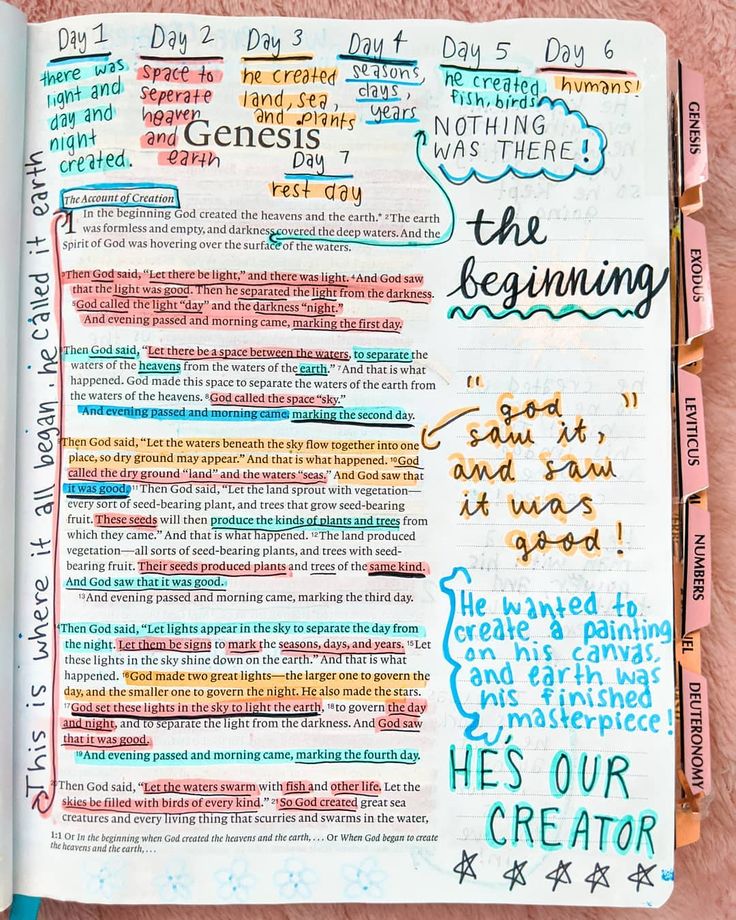 Day 1
there was
light and
day and
night
created.
Day 2
space to
seperate
heaven
and
earth
Day 3
he created
land, sea,
and plants
Day 4
seasons,
days,
years
Day 5
he created
fish, birds
Day 6
humans!
Genesis
Day 7
rest day
NOTHING
WAS THERE!
This is where it all began. he called it earth
The Account of Creation
1 In the beginning God created the heavens and the earth.* 2The earth
was formless and empty, and darkness covered the deep waters. And the
Spirit of God was hovering over the surface of the waters.
3Then God said, “Let there be light,” and there was light. 4And God saw
that the light was good. Then he separated the light from the darkness.
5God called the light “day” and the darkness “night.”
And evening passed and morning came, marking the first day.
Then God said, “Let there be a space between the waters, to separate the
waters of the heavens from the waters of the earth.” 7And that is what
happened. God made this space to separate the waters of the earth from
the waters of the heavens. 8God called the space “sky.”
And evening passed and morning came, marking the second day.
Then God said, “Let the waters beneath the sky flow together into one
place, so dry ground may appear.” And that is what happened. 10God
called the dry ground “land” and the waters “seas.” And God saw that
it was good. 11Then God said, “Let the land sprout with vegetation—
every sort of seed-bearing plant, and trees that grow seed-bearing
fruit. These seeds will then produce the kinds of plants and trees from
which they came.” And that is what happened. 12The land produced
vegetation—all sorts of seed-bearing plants, and trees with seed-
bearing fruit. Their seeds produced plants and trees of the same kind.
And God saw that it was good.
13And evening passed and morning came, marking the third day.
Then God said, “Let lights appear in the sky to separate the day from
the night. Let them be signs to mark the seasons, days, and years. 15Let
these lights in the sky shine down on the earth.” And that is what
happened. 16God made two great lights—the larger one to govern the
day, and the smaller one to govern the night. He also made the stars.
17God set these lights in the sky to light the earth, 18to govern the day
and night, and to separate the light from the darkness. And God saw
that it was good.
19And evening passed and morning came, marking the fourth day.
Then God said, “Let the waters swarm with fish and other life. Let the
skies be filled with birds of every kind.” 21So God created great sea
creatures and every living thing that scurries and swarms in the water,
1:1 Or In the beginning when God created the heavens and the earth, . . . Or When God began to create
the heavens and the earth, . . .
the
beginning
“god ”
saw it,
and saw
it was
good!
He wanted to
create a painting
on his canvas,
and earth was
his finished
masterpiece!
HE'S OUR
CREATOR
GENESIS
EXODUS
LEVITICUS
NUMBERS
DEUTERONOMY